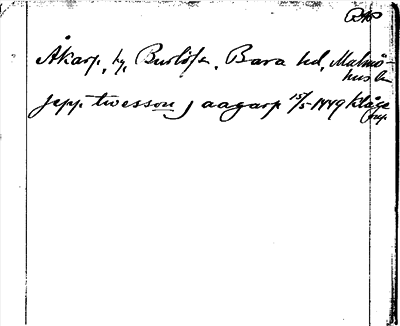 Åkarp, by, Burlöfs s., Bara hd, Malmö-
hus län
jepp twesson j aagarp 15/5 1449 Klåge
rup